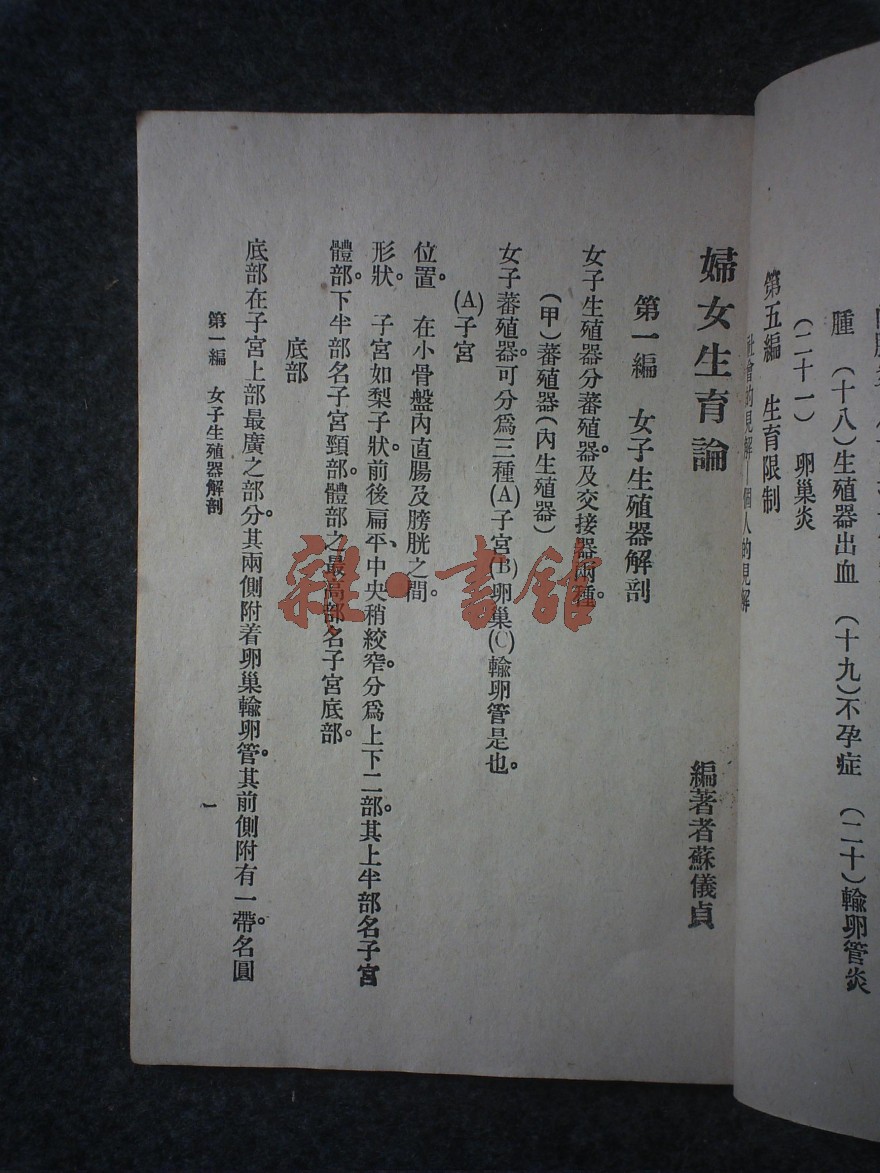 腫　(十八)生殖器出血　(十九)不孕症　(二十)輸卵管炎
(二十一)　卵巢炎
第五編　生育限制
社會的見解—個人的見解
婦女生育論
編著者蘇儀貞
第一編　女子生殖器解剖
女子生殖器分蕃殖器。及交接器兩種。
(甲)蕃殖器(內生殖器)
女子蕃殖器。可分爲三種(A)子宮(B)卵巢(C)輸卵管是也。
(A)子宮
位置。　在小骨盤內直腸及膀胱之間。
形狀。　子宮如梨子狀。前後扁平、中央稍絞窄。分爲上下二部。其上半部名子宮
體部。下半部名子宮頸部。體部之最高部名子宮底部。
底部
底部在子宮上部最廣之部分。其兩側附着卵巢輸卵管。其前側附有一帶。名圓
第一編　女子生殖器解剖
一
雜·書館